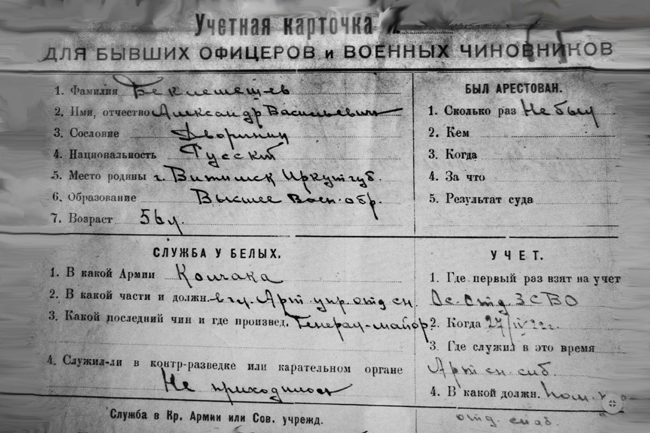 Учетная карточка
ДЛЯ БЫВШИХ ОФИЦЕРОВ и ВОЕННЫХ ЧИНОВНИКОВ
1. Фамилия Беклемешев
2. Имя, отчество Александр Васильевич
3. Сословие Дворянин
4. Национальность Русский
5. Место родины г. Витимск Иркут губ.
6. Образование Высшее Воен. обр.
7. Возраст 56 л.
БЫЛ АРЕСТОВАН.
1. Сколько раз Не был
2. Кем
3. Когда
4. За что
5. Результат суда
СЛУЖБА У БЕЛЫХ.
1. В какой Армии Колчака
2. В какой части и должн. в гл. Арт. упр. отд. сн.
3. Какой последний чин и где произвед. Генерал-майор
4. Служил-ли в контр-разведке или карательном органе
Не приходилось
УЧЕТ.
1. Где первый раз взят на учет
Ос. Отд. ЗСВО
2. Когда 27/IV 22 г.
3. Где служил в это время
Арт. сн. сиб.
4. В какой должн. пом.
отд. снаб.
Служба в Кр. Армии или Сов. учрежд.